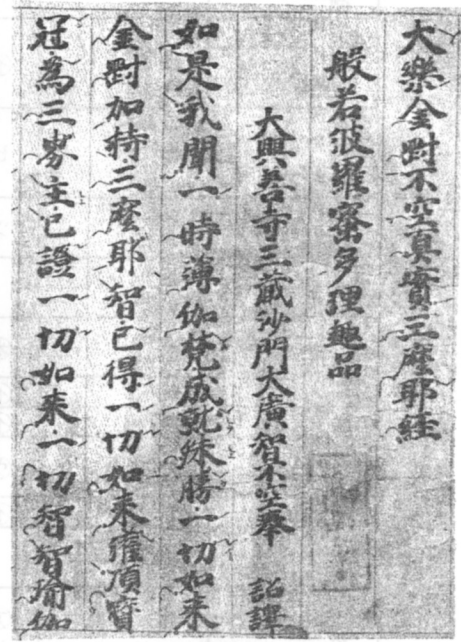 大樂金剛不空真實三麼耶経
般若波羅蜜多理趣品
大興善寺三藏沙門大廣智不空奉　詔譯
如是我聞一時薄伽梵成就殊勝一切如来
金剛加持三麼耶智已得一切如来灌頂寶
冠為三界主已證一切如来一切智智瑜伽